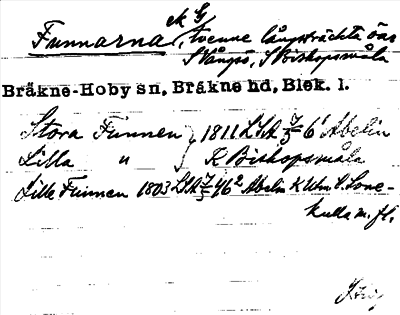 N G
Funnarna, tvenne långsträckta öar
S Vångsö, S Bishopsmåla
Bräkne-Hoby sn, Bräkne hd, Blek. l.
Stora Funnen } 1811 LSA 7/3 6¹ Abelin
Lilla " } K Bishopsmåla
Lille Funnen 1803 LSA 7/5 46² Abelin K Utm t. Lone-
kulla m. fl.